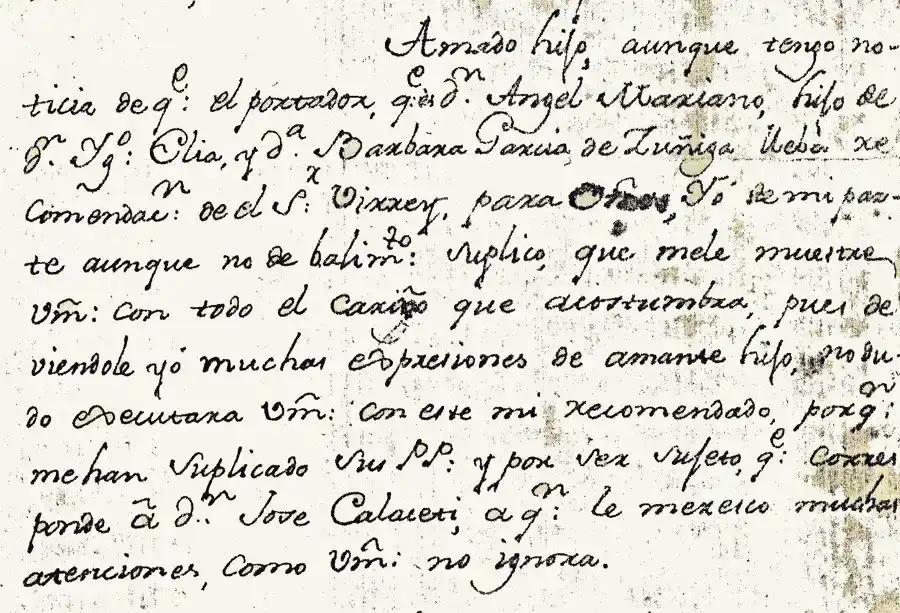 Amado hijo, aunque tengo no-
ticia de q.e: el portador, q.e es d.n Angel Mariano, hijo de
d.n Yg.o: Elia, y d.a Barbara Garcia de Zuñiga llebà re
comendac.n: de el S.r: Virrey, para, Yó de mi par-
te aunque no de balim.to: suplico, que mele muestre
Vm̃: con todo el cariño que acostumbra, pues de
viendole yó muchas expresiones de amante hijo, no du-
do executara Vm̃: con este mi recomendado, porq.n:
me han suplicado sus PP: y por ser sujeto, q.e: corres
ponde â d.n Jose Calaceti, â q.n: le meresco muchas
atenciones, como Vm̃: no ignora.